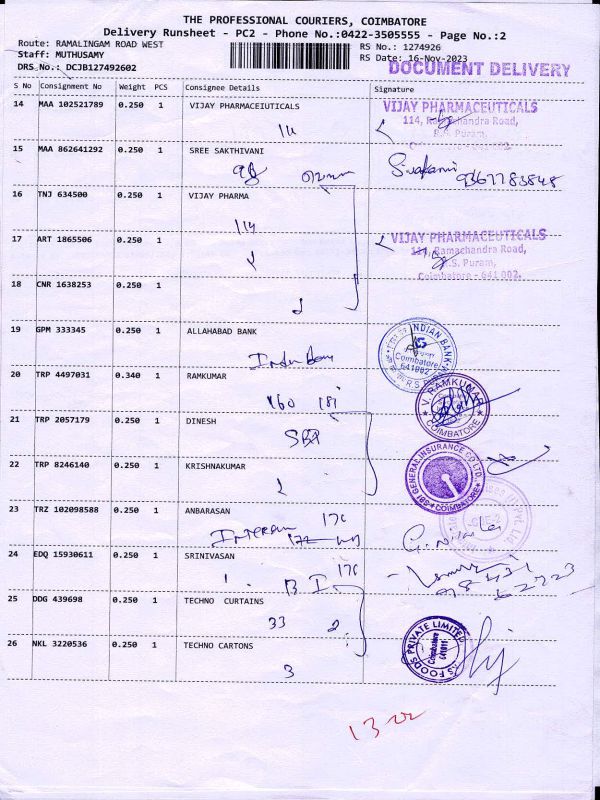 THE PROFESSIONAL COURIERS, COIMBATORE
Delivery Runsheet - PC2 - Phone No.:0422-3505555 - Page No.:2
Route: RAMALINGAM ROAD WEST
RS No.: 1274926
Staff: MUTHUSAMY
RS Date: 16-Nov-2023
DRS No.: DCJB127492602
DOCUMENT DELIVERY
S No Consignment No Weight PCS Consignee Details Signature
14 MAA 102521789 0.250 1 VIJAY PHARMACEIUTICALS
VIJAY PHARMACEUTICALS
114, Ramachandra Road,
R.S. Puram,
15 MAA 862641292 0.250 1 SREE SAKTHIVANI
9367783848
16 TNJ 634500 0.250 1 VIJAY PHARMA
114
17 ART 1865506 0.250 1
VIJAY PHARMACEUTICALS
114, Ramachandra Road,
R.S. Puram,
Coimbatore - 641 002.
18 CNR 1638253 0.250 1
19 GPM 333345 0.250 1 ALLAHABAD BANK
INDIAN BANK
Coimbatore
641002
R.S. P
20 TRP 4497031 0.340 1 RAMKUMAR
160 181
V. RAMKUMAR
COIMBATORE
21 TRP 2057179 0.250 1 DINESH
SBI
22 TRP 8246140 0.250 1 KRISHNAKUMAR
SBI GENERAL INSURANCE CO LTD
COIMBATORE
23 TRZ 102098588 0.250 1 ANBARASAN
176
24 EDQ 15930611 0.250 1 SRINIVASAN
176
25 DDG 439698 0.250 1 TECHNO CURTAINS
33 2
FOODS PRIVATE LIMITED
Coimbatore
26 NKL 3220536 0.250 1 TECHNO CARTONS
3
13-22